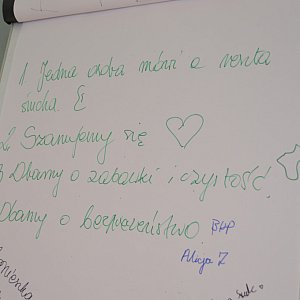 1. Jedna osoba mówi a reszta
słucha.
2. Szanujemy się
3 Dbamy o zabawki i czystość.
Dbamy o bezpieczeństwo BHP
Alicja Z